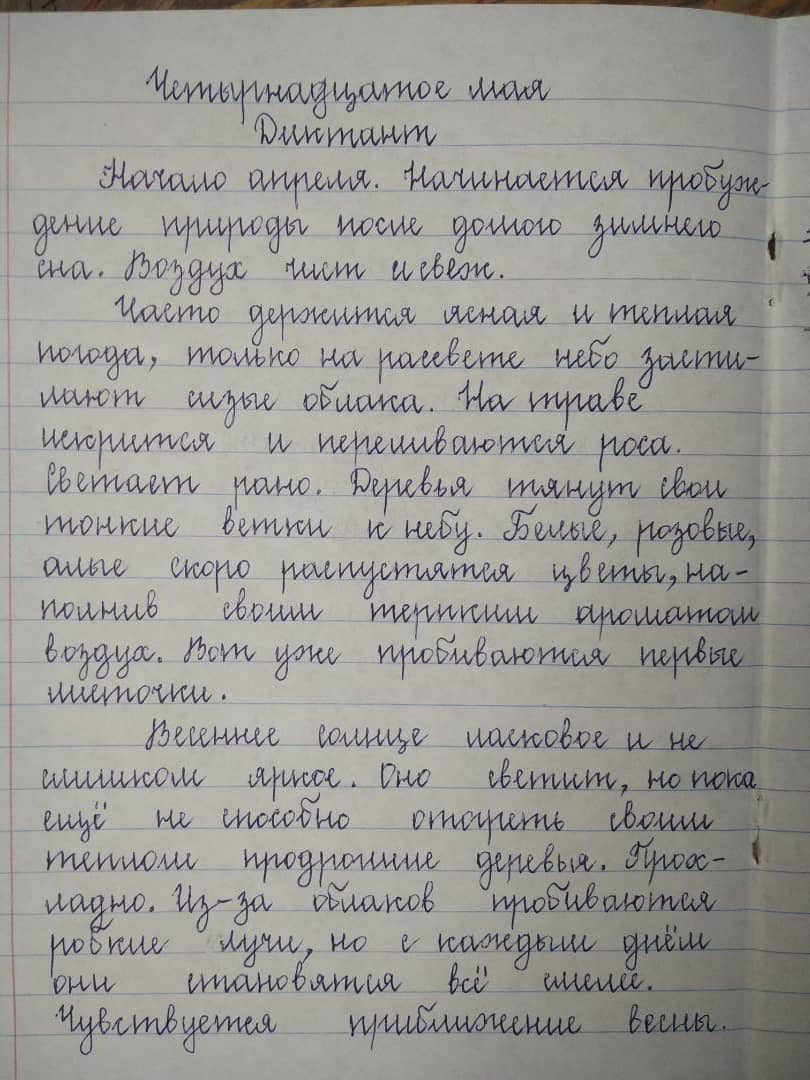 Четырнадцатое мая
Диктант
Начало апреля. Начинается пробуж-
дение природы после долгого зимнего
сна. Воздух чист и свеж.
Часто держится ясная и теплая
погода, только на рассвете небо засти-
лают сизые облака. На траве
искрится и переливаются роса.
Светает рано. Деревья тянут свои
тонкие ветки к небу. Белые, розовые,
алые скоро распустятся цветы, на-
полнив своим терпким ароматом
воздух. Вот уже пробиваются первые
листочки.
Весеннее солнце ласковое и не
слишком яркое. Оно светит, но пока
ещё не способно отогреть своим
теплом продрогшие деревья. Прох-
ладно. Из-за облаков пробиваются
робкие лучи, но с каждым днём
они становятся всё смелее.
Чувствуется приближение весны.